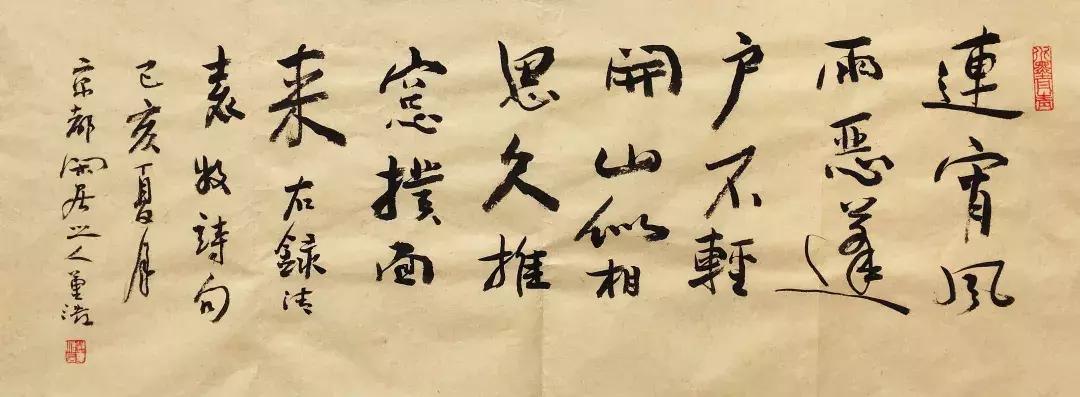 連宵風
雨惡蓬
户不輕
開山似相
思久推
窓撲面
来 右録清
袁枚詩句
己亥夏月
京都閑居之人董浩